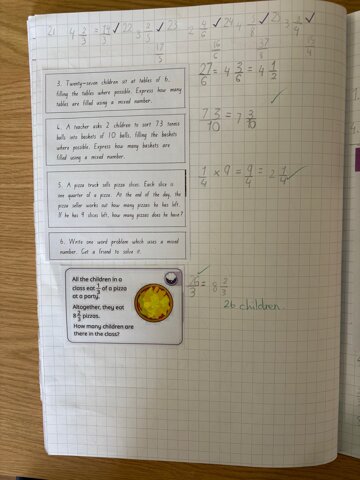 3. Twenty-seven children sit at tables of 6,
filling the tables where possible. Express how many
tables are filled using a mixed number.
27/6 = 4 3/6 = 4 1/2
4. A teacher asks 2 children to sort 73 tennis
balls into baskets of 10 balls, filling the baskets
where possible. Express how many baskets are
filled using a mixed number.
73/10 = 7 3/10
5. A pizza truck sells pizza slices. Each slice is
one quarter of a pizza. At the end of the day, the
pizza seller works out how many pizzas he has left.
If he has 9 slices left, how many pizzas does he have?
1/4 × 9 = 9/4 = 2 1/4
6. Write one word problem which uses a mixed
number. Get a friend to solve it.
All the children in a
class eat 1/3 of a pizza
at a party.
Altogether, they eat
8 2/3 pizzas.
How many children are
there in the class?
26/3 = 8 2/3
26 children